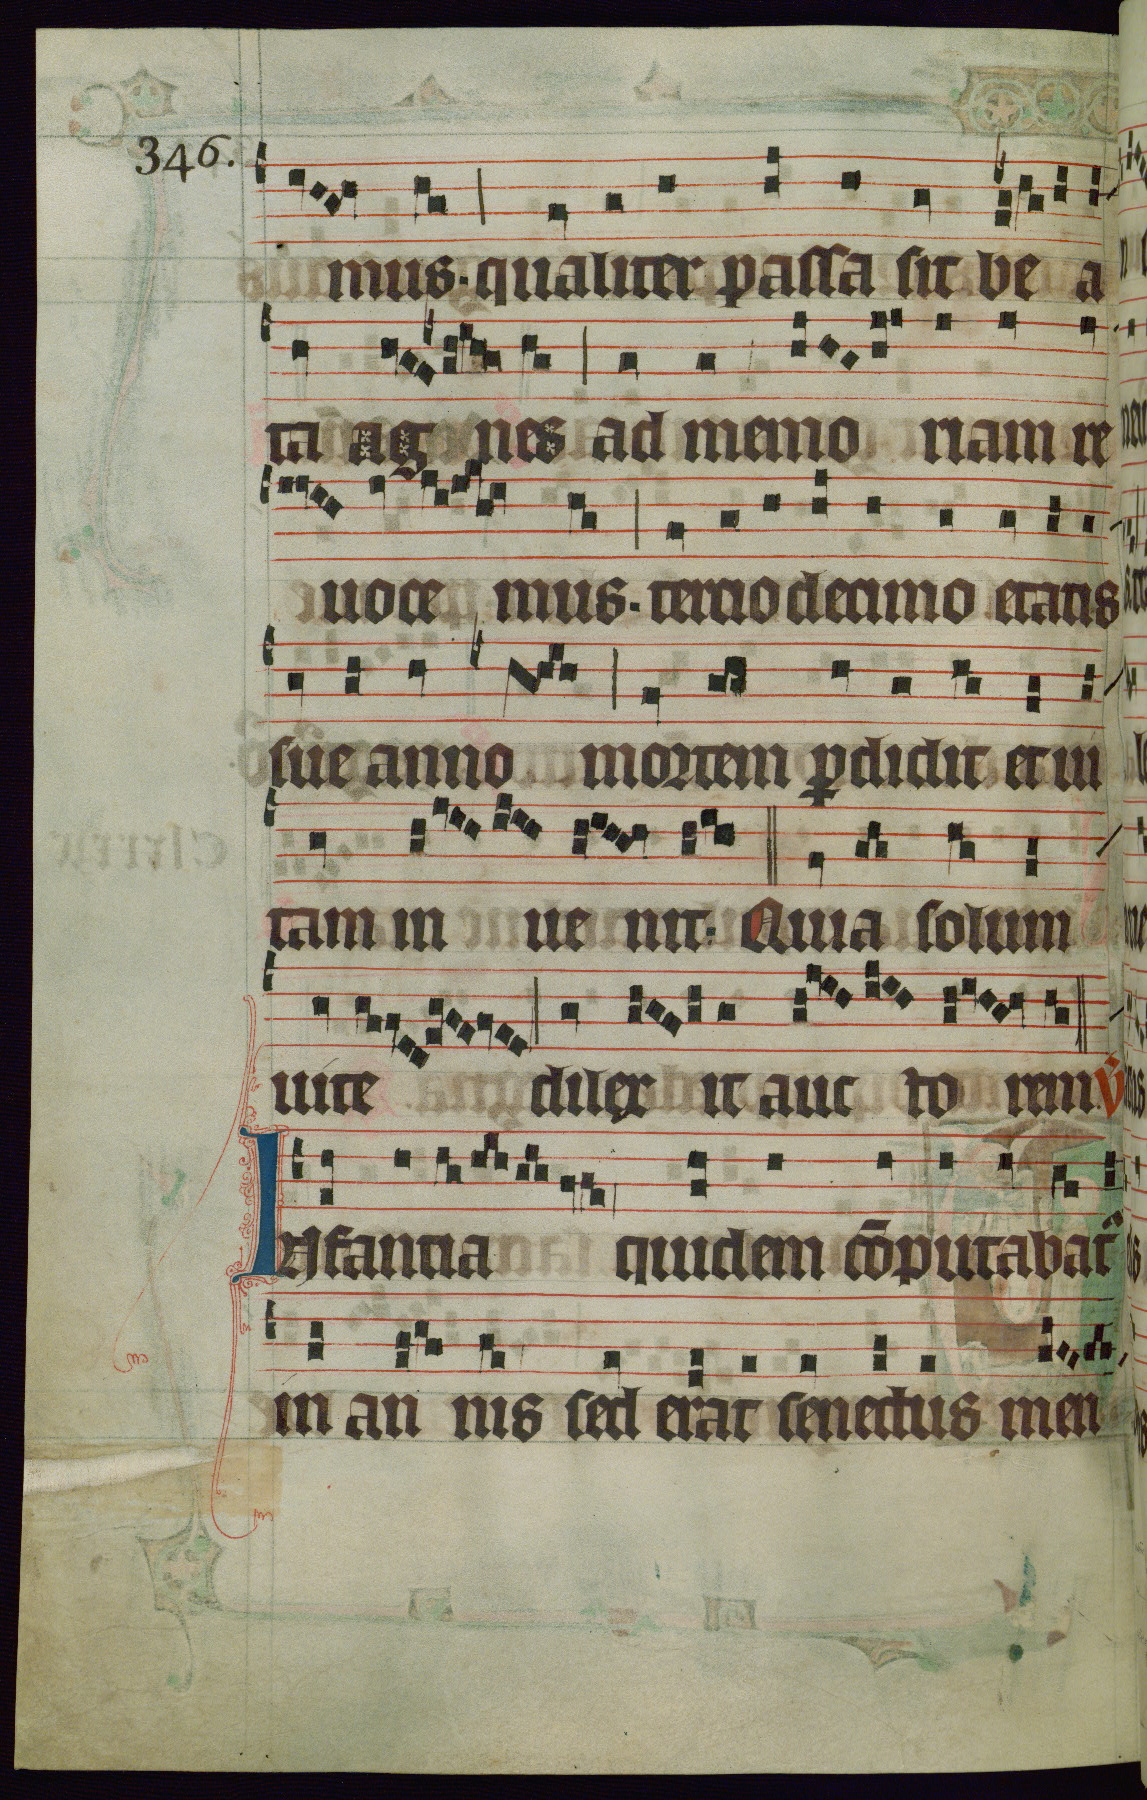 346.
mus. qualiter passa sit be a
ta agnes ad memo riam re
uoce mus. tertio decimo etatis
sue anno mortem ꝑdidit et ui
tam in ue nit: Quia solum
uite dilex it auc to rem. V̄
INfantia quidem cōputabat᷑
in an nis sed erat senectus men